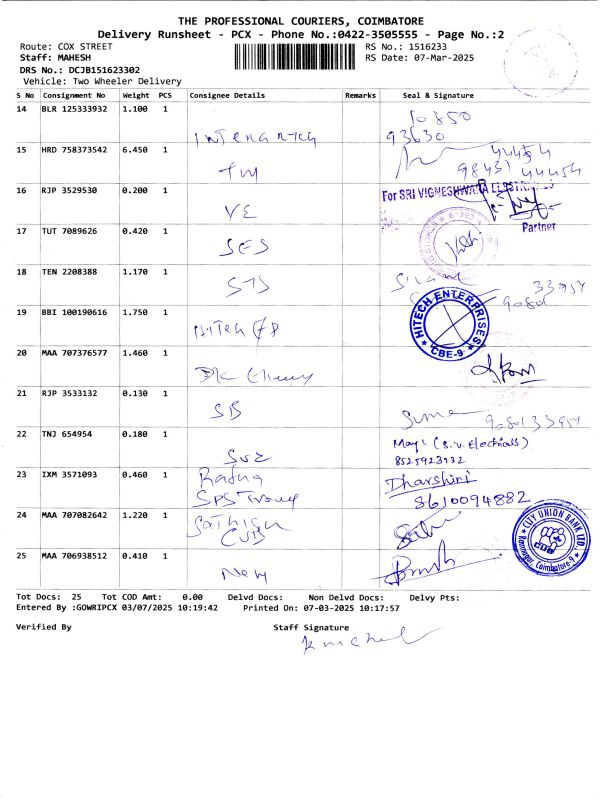 THE PROFESSIONAL COURIERS, COIMBATORE
Delivery Runsheet - PCX - Phone No.:0422-3505555 - Page No.:2
Route: COX STREET
RS No.: 1516233
Staff: MAHESH
RS Date: 07-Mar-2025
DRS No.: DCJB151623302
Vehicle: Two Wheeler Delivery
S No Consignment No Weight PCS Consignee Details Remarks Seal & Signature
14 BLR 125333932 1.100 1
93630
15 HRD 758373542 6.450 1
TM
44454
98431 44454
16 RJP 3529530 0.200 1
VE
For SRI VIGNESHWARA
Partner
17 TUT 7089626 0.420 1
SES
18 TEN 2208388 1.170 1
STS
19 BBI 100190616 1.750 1
HiTech
HITECH ENTERPRISES
CBE-9
20 MAA 707376577 1.460 1
21 RJP 3533132 0.130 1
SB
22 TNJ 654954 0.180 1
SVE
(S.V. Electricals)
8525923932
23 IXM 3571093 0.460 1
Ratna
SPS
Dharshini
8610094882
24 MAA 707082642 1.220 1
CUB
CITY UNION BANK LTD.
CUB
Ramnagar, Coimbatore-9
25 MAA 706938512 0.410 1
New
Tot Docs: 25 Tot COD Amt: 0.00 Delvd Docs: Non Delvd Docs: Delvy Pts:
Entered By :GOWRIPCX 03/07/2025 10:19:42 Printed On: 07-03-2025 10:17:57
Verified By Staff Signature